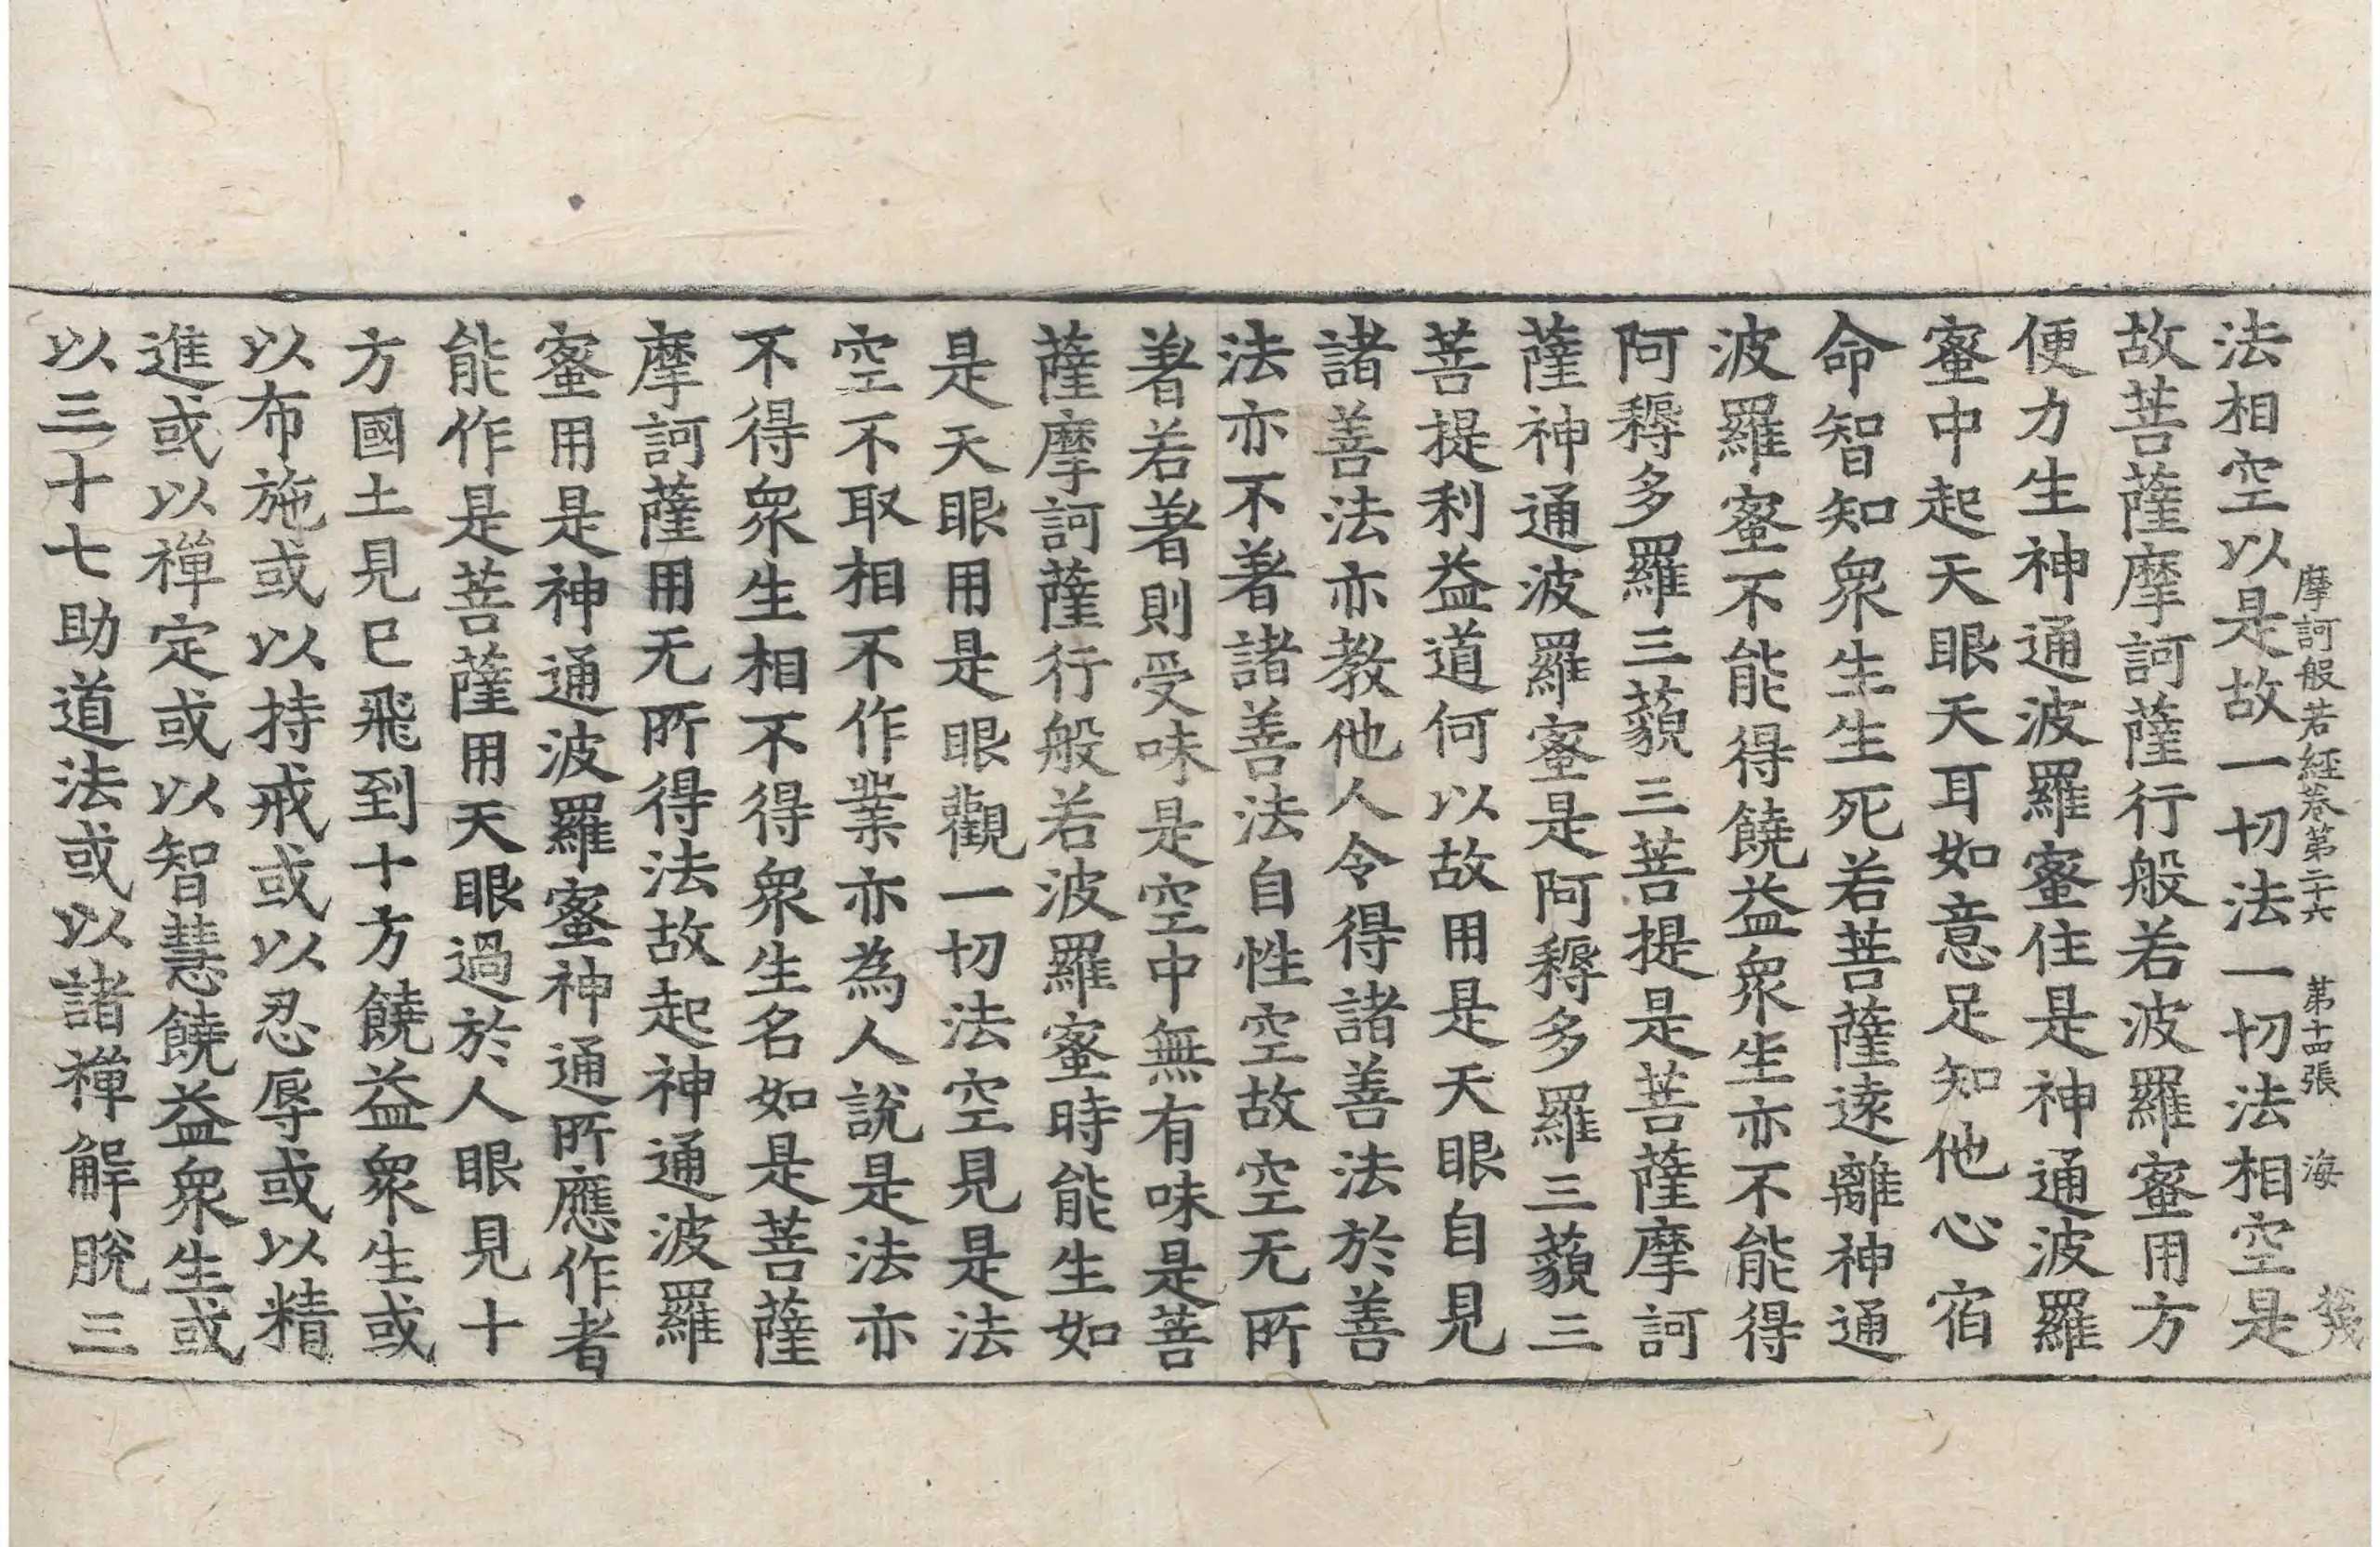 摩訶般若經卷第二十六 第十四張 海
法相空以是故一切法一切法相空是
故菩薩摩訶薩行般若波羅蜜用方
便力生神通波羅蜜住是神通波羅
蜜中起天眼天耳如意足知他心宿
命智知衆生生死若菩薩遠離神通
波羅蜜不能得饒益衆生亦不能得
阿耨多羅三藐三菩提是菩薩摩訶
薩神通波羅蜜是阿耨多羅三藐三
菩提利益道何以故用是天眼自見
諸善法亦教他人令得諸善法於善
法亦不著諸善法自性空故空无所
著若著則受味是空中無有味是菩
薩摩訶薩行般若波羅蜜時能生如
是天眼用是眼觀一切法空見是法
空不取相不作業亦為人說是法亦
不得衆生相不得衆生名如是菩薩
摩訶薩用无所得法故起神通波羅
蜜用是神通波羅蜜神通所應作者
能作是菩薩用天眼過於人眼見十
方國土見已飛到十方饒益衆生或
以布施或以持戒或以忍辱或以精
進或以禪定或以智慧饒益衆生或
以三十七助道法或以諸禪解脫三